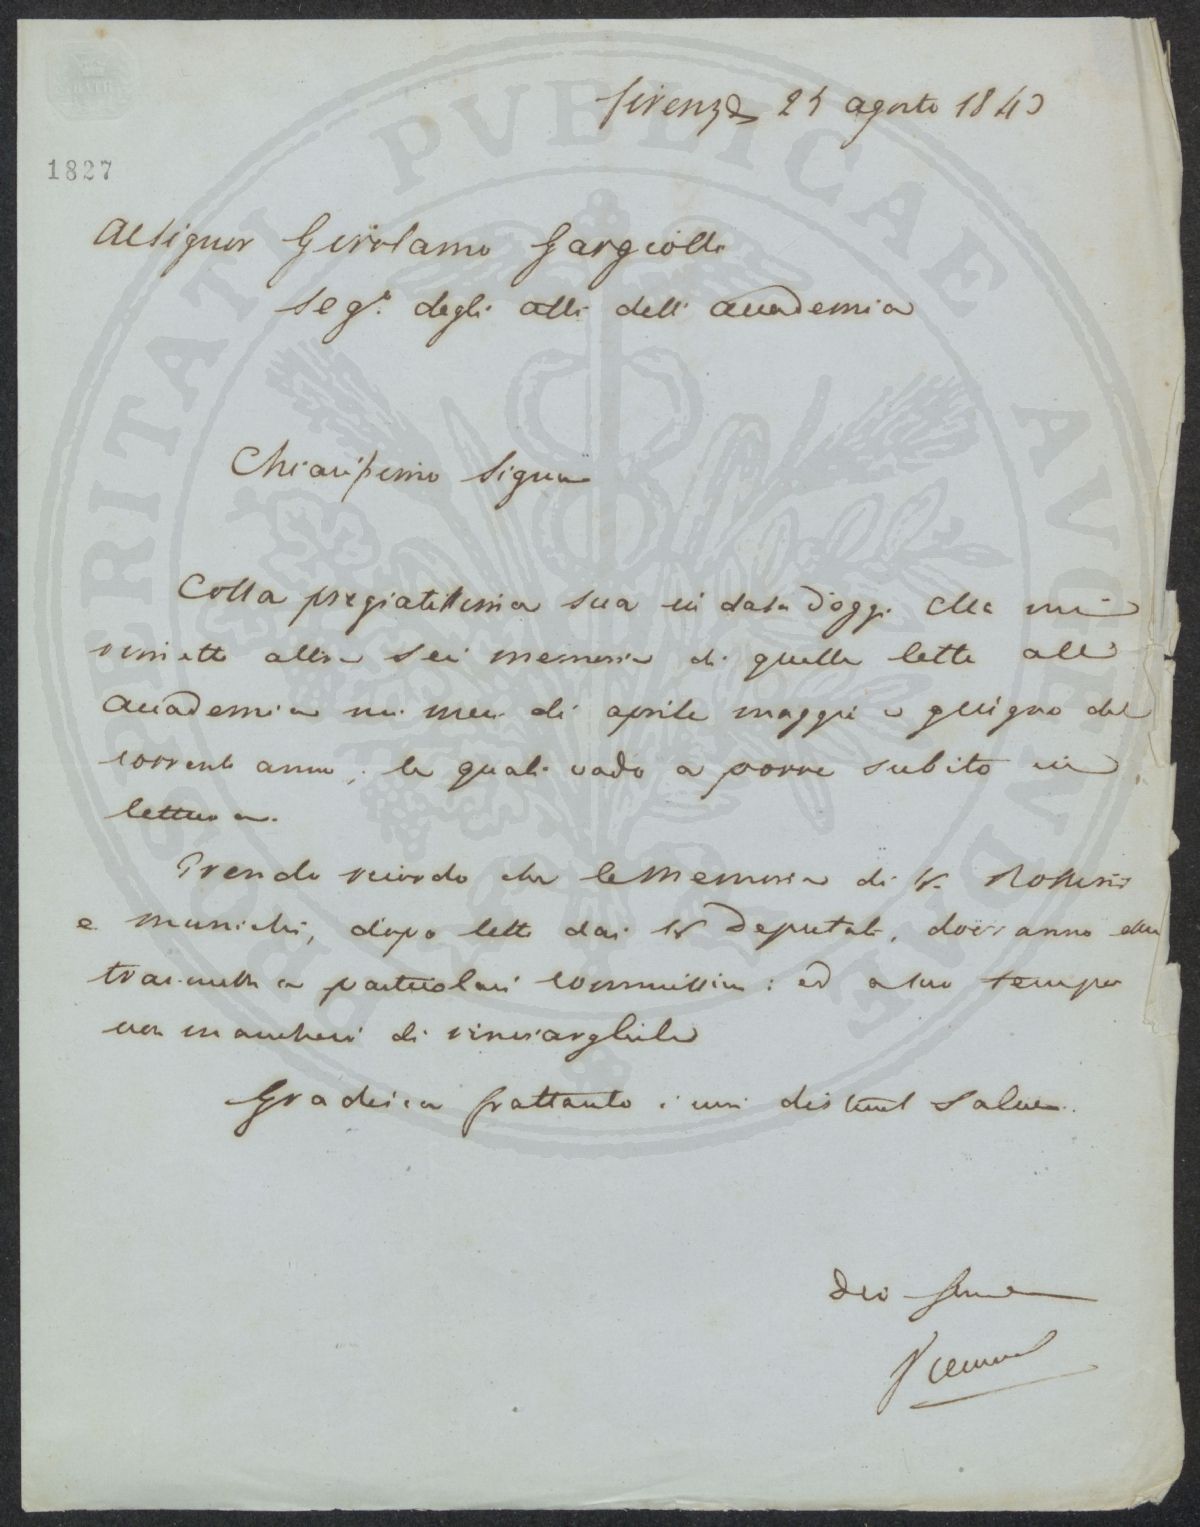 Firenze 25 agosto 1843
1827
Al Signor Girolamo Gargiolli
Seg.º degli atti dell' Accademia
Chiarissimo Signore
Colla pregiatissima sua in data d'oggi Ella mi
rimette altre sei memorie di quelle lette all'
Accademia nei mesi di aprile maggio e giugno del
corrente anno, le quali vado a porre subito in
lettura.
Prendo ricordo che le Memorie di
e dopo lette dai Deputati, dovranno esser
trasmesse a particolari commissioni: ed a suo tempo
non mancherò di
Gradisca frattanto i miei distinti saluti.
PROSPERITATI PVBLICAE AVGENDAE